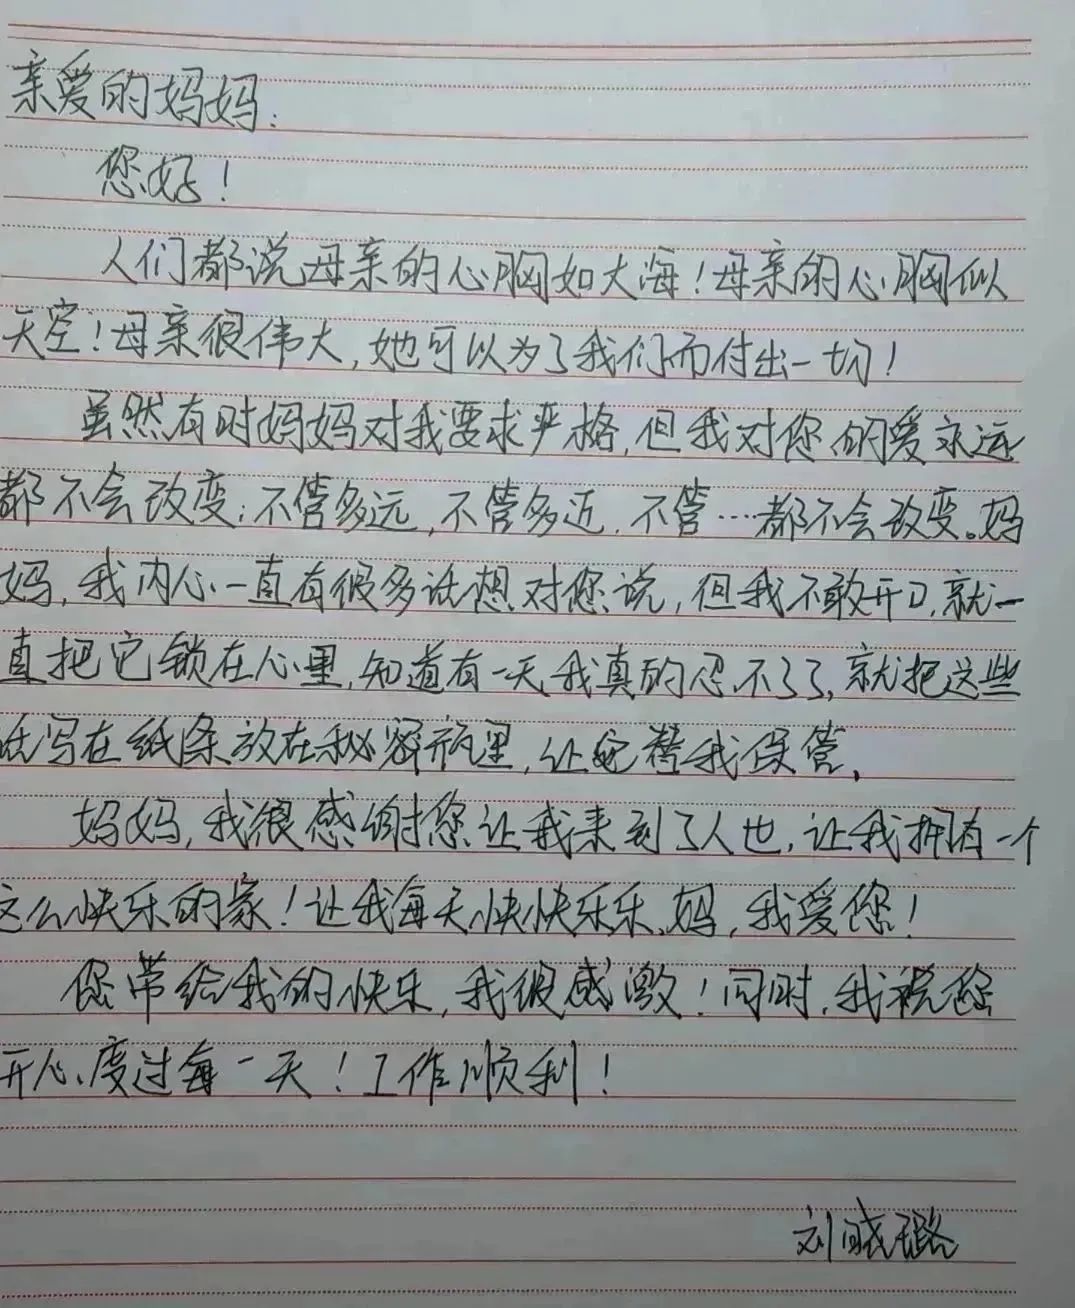 亲爱的妈妈:
您好!
人们都说母亲的心胸如大海!母亲的心胸似
天空!母亲很伟大,她可以为了我们而付出一切!
虽然有时妈妈对我要求严格,但我对您的爱永远
都不会改变;不管多远,不管多近,不管……都不会改变。妈
妈,我内心一直有很多话想对您说,但我不敢开口,就一
直把它锁在心里,知道有一天,我真的忍不了了,就把这些
话写在纸条放在秘密瓶里,让它替我保管。
妈妈,我很感谢您让我来到了人也,让我拥有一个
这么快乐的家!让我每天快快乐乐,妈,我爱您!
您带给我的快乐,我很感激!同时,我祝您
开心度过每一天!工作顺利!
刘晓璐